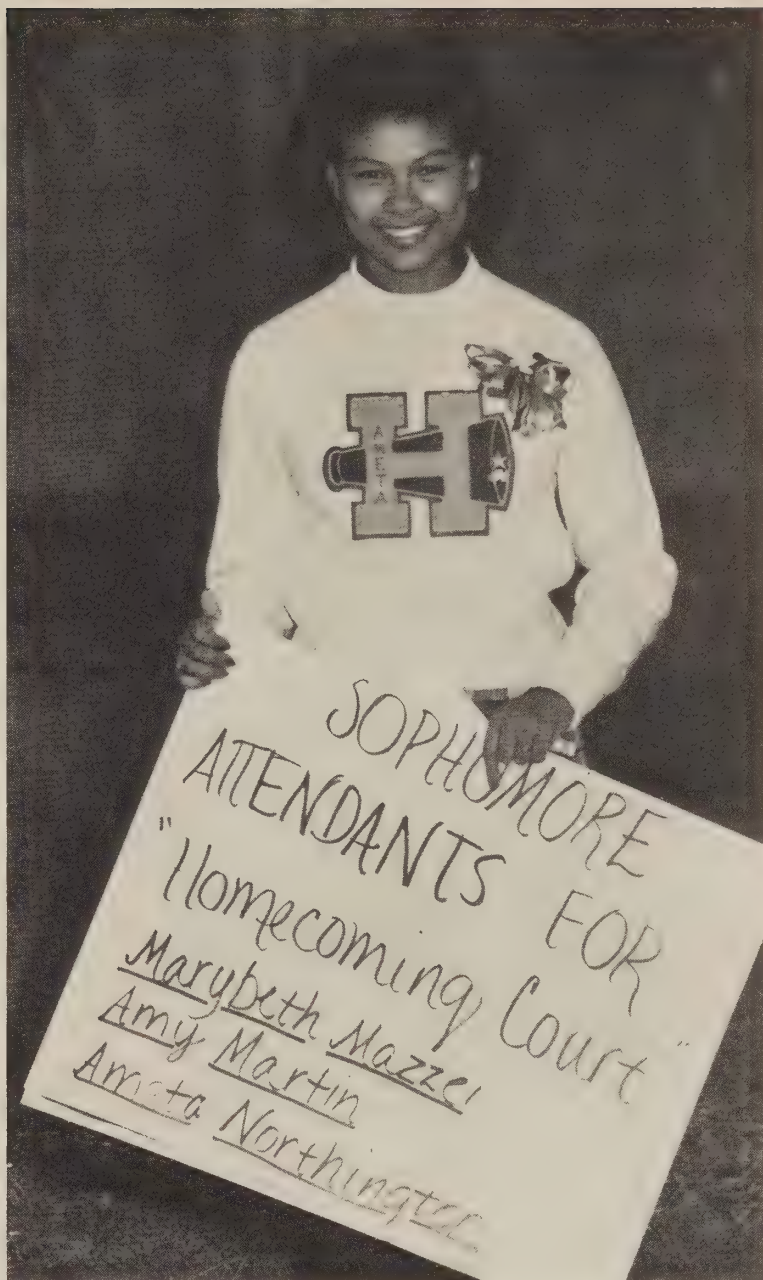 H
SOPHOMORE
ATTENDANTS FOR
"Homecoming Court"
Marybeth Mazzei
Amy Martin
Northington